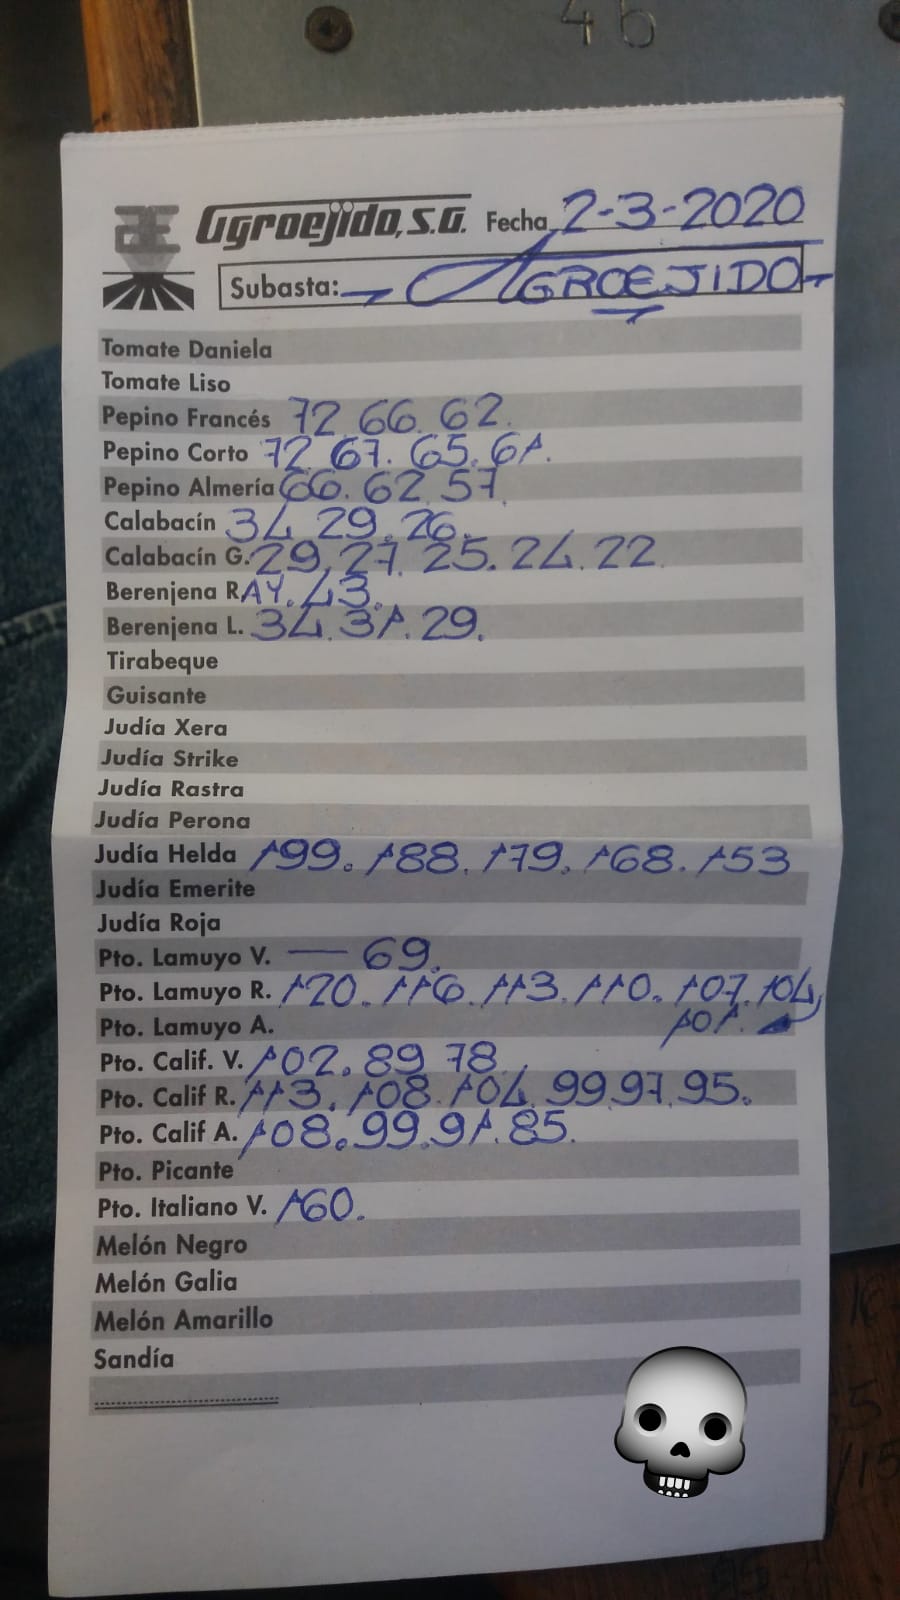 46
Agroejido, S.A. Fecha 2-3-2020
Subasta: AGROEJIDO
Tomate Daniela
Tomate Liso
Pepino Francés 72 66. 62.
Pepino Corto 72 67. 65. 61.
Pepino Almería 66. 62 57
Calabacín 34 29. 26.
Calabacín G. 29. 27 25. 24. 22
Berenjena RAY. 43.
Berenjena L. 34. 31. 29.
Tirabeque
Guisante
Judía Xera
Judía Strike
Judía Rastra
Judía Perona
Judía Helda 199. 188. 179. 168. 153
Judía Emerite
Judía Roja
Pto. Lamuyo V. — 69.
Pto. Lamuyo R. 120. 116. 113. 110. 107. 104,
Pto. Lamuyo A. 101.
Pto. Calif. V. 102. 89 78
Pto. Calif R. 113. 108 104 99 97. 95.
Pto. Calif A. 108. 99. 91. 85.
Pto. Picante
Pto. Italiano V. 160.
Melón Negro
Melón Galia
Melón Amarillo
Sandía